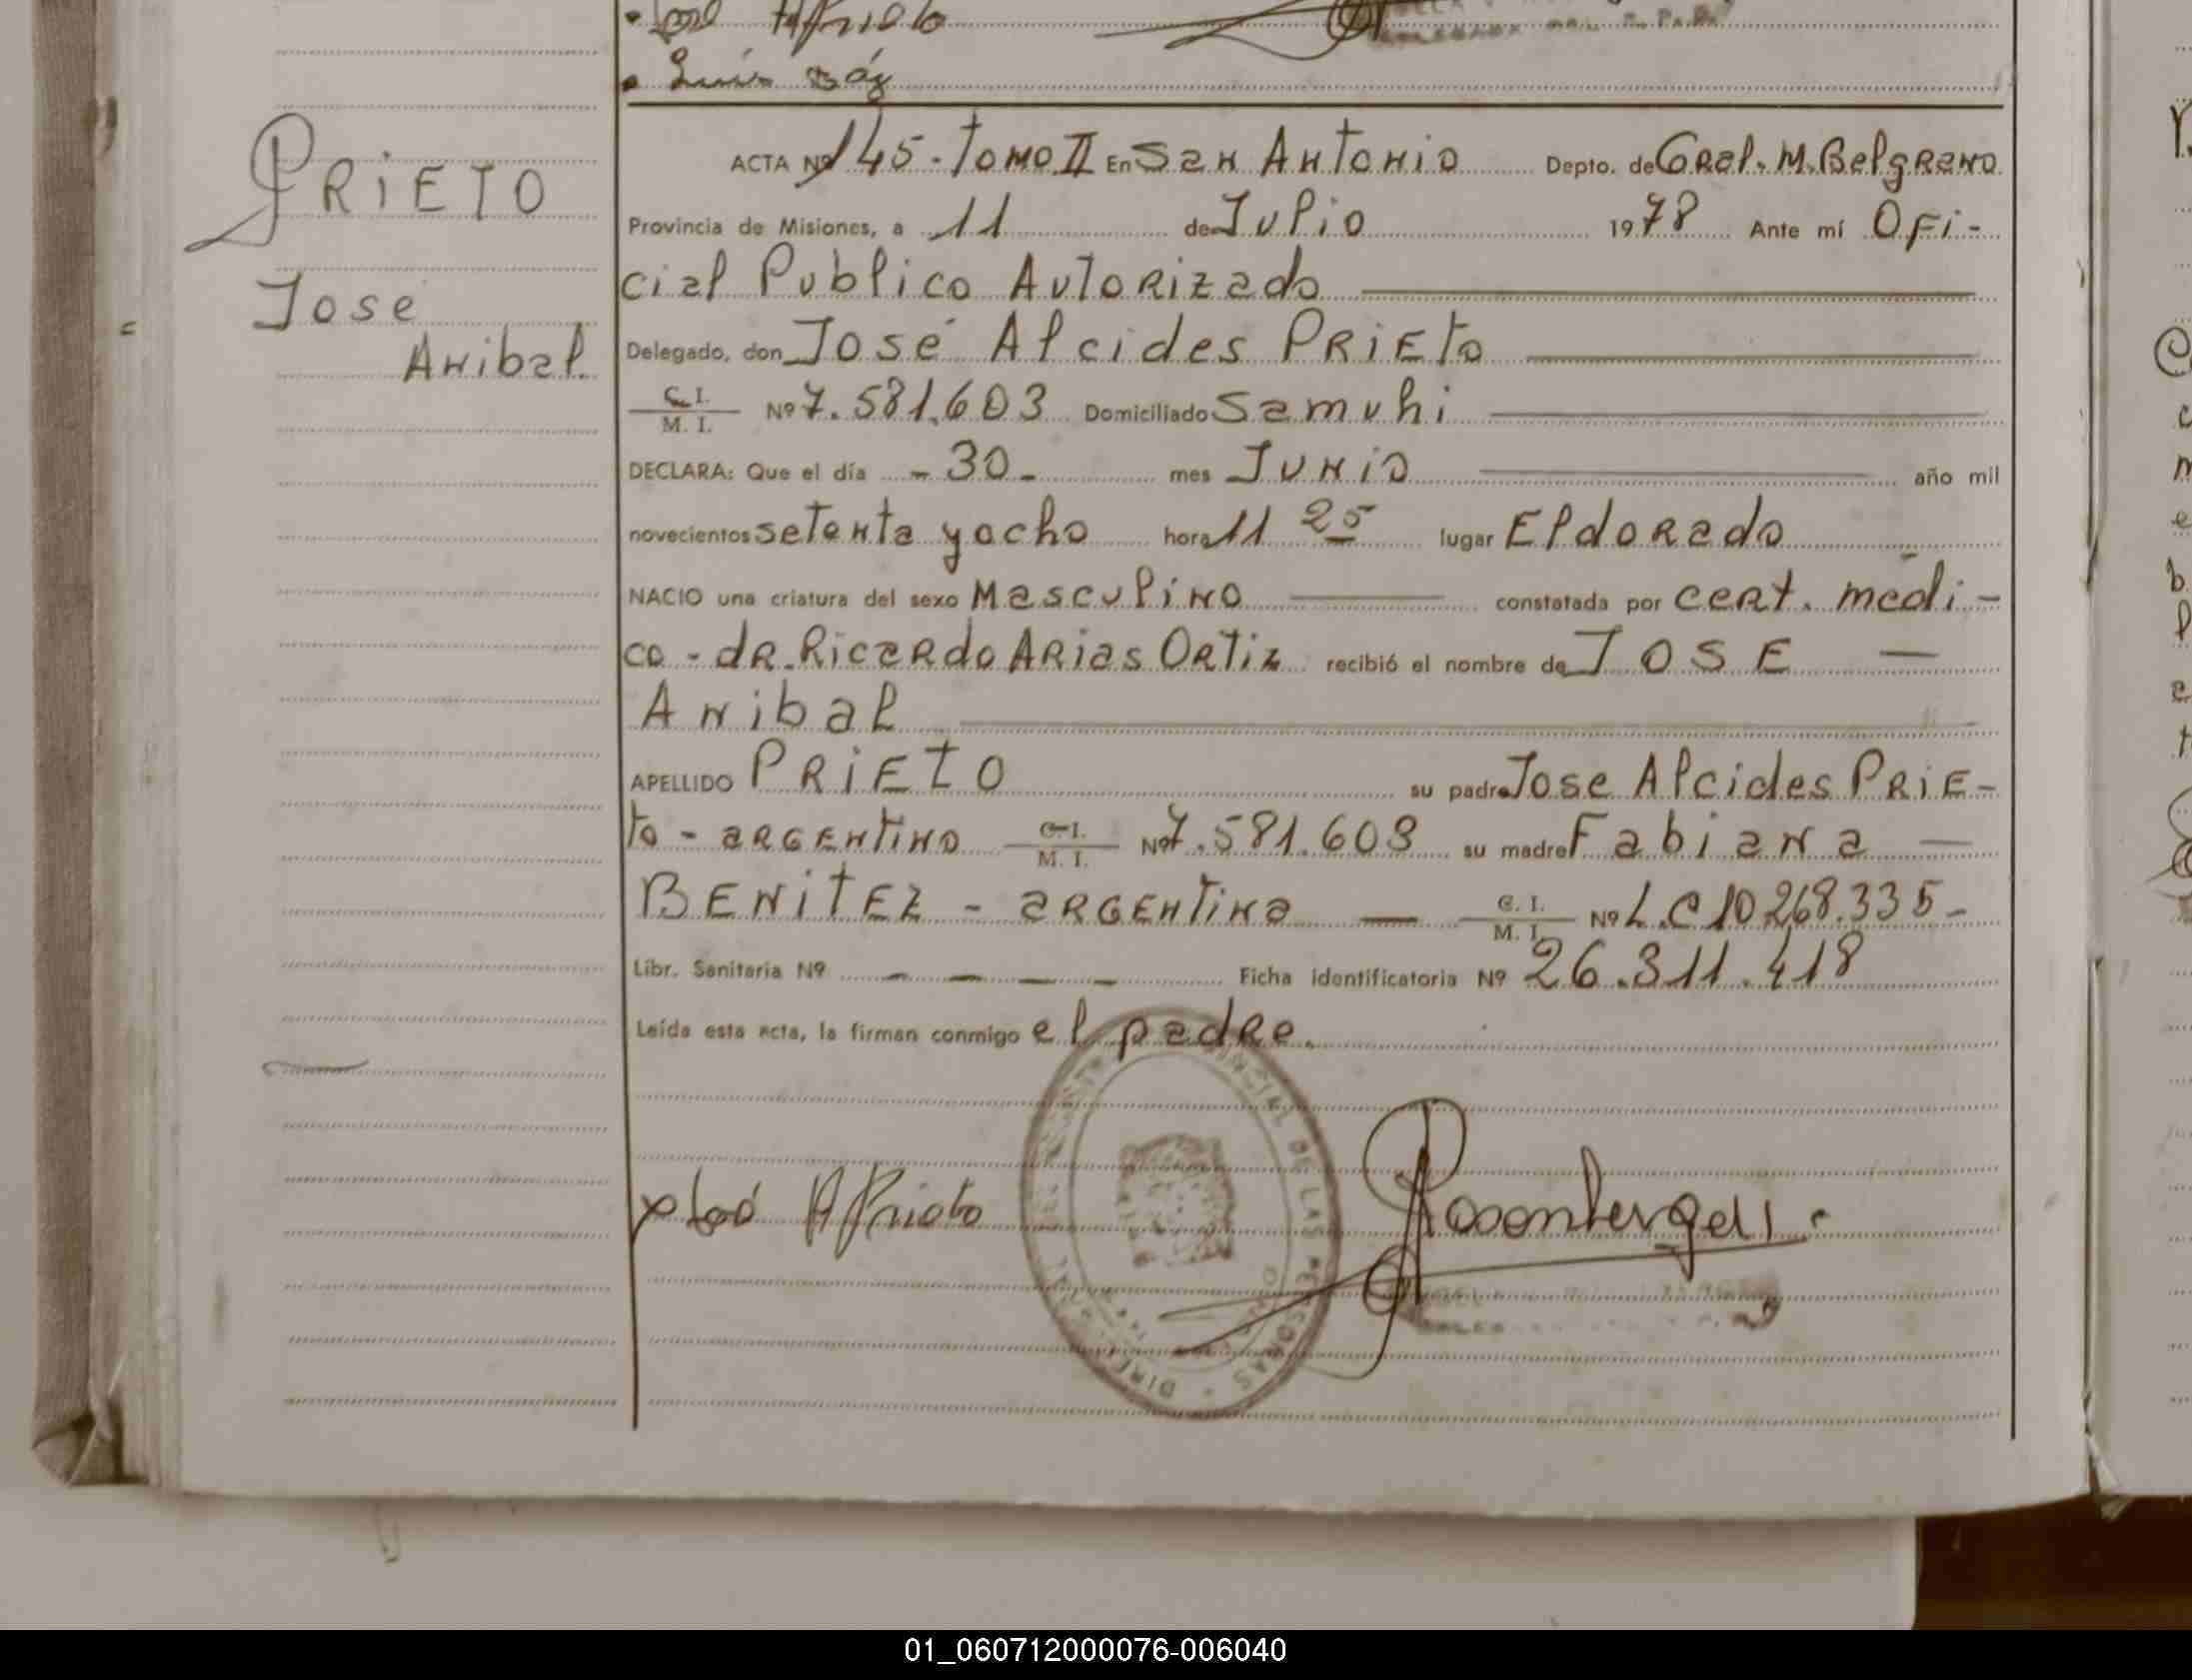 José A Prieto
Luis Báz
PRIETO
Jose
Anibal
ACTA Nº 145 - Tomo II En San Antonio Depto. de Gral. M. Belgrano
Provincia de Misiones, a 11 de Julio 1978 Ante mí Ofi-
cial Publico Autorizado
Delegado, don José Alcides PRIETO
C. I. / M. I. Nº 7.581.603 Domiciliado Samuhi
DECLARA: Que el día - 30 - mes Junio año mil
novecientos setenta y ocho hora 11 25 lugar Eldorado
NACIO una criatura del sexo Masculino constatada por cert. médi-
co - dR. Ricardo Arias Ortiz recibió el nombre de JOSE —
Anibal
APELLIDO PRIETO su padre Jose Alcides PRIE-
to - argentino C. I. / M. I. Nº 7.581.603 su madre Fabiana —
BENITEZ - argentina — C. I. / M. I. Nº L.C 10.268.335-
Libr. Sanitaria Nº - - - - Ficha identificatoria Nº 26.311.418
Leída esta acta, la firman conmigo el padre.
x José A Prieto
DE LAS PERSONAS
01_060712000076-006040